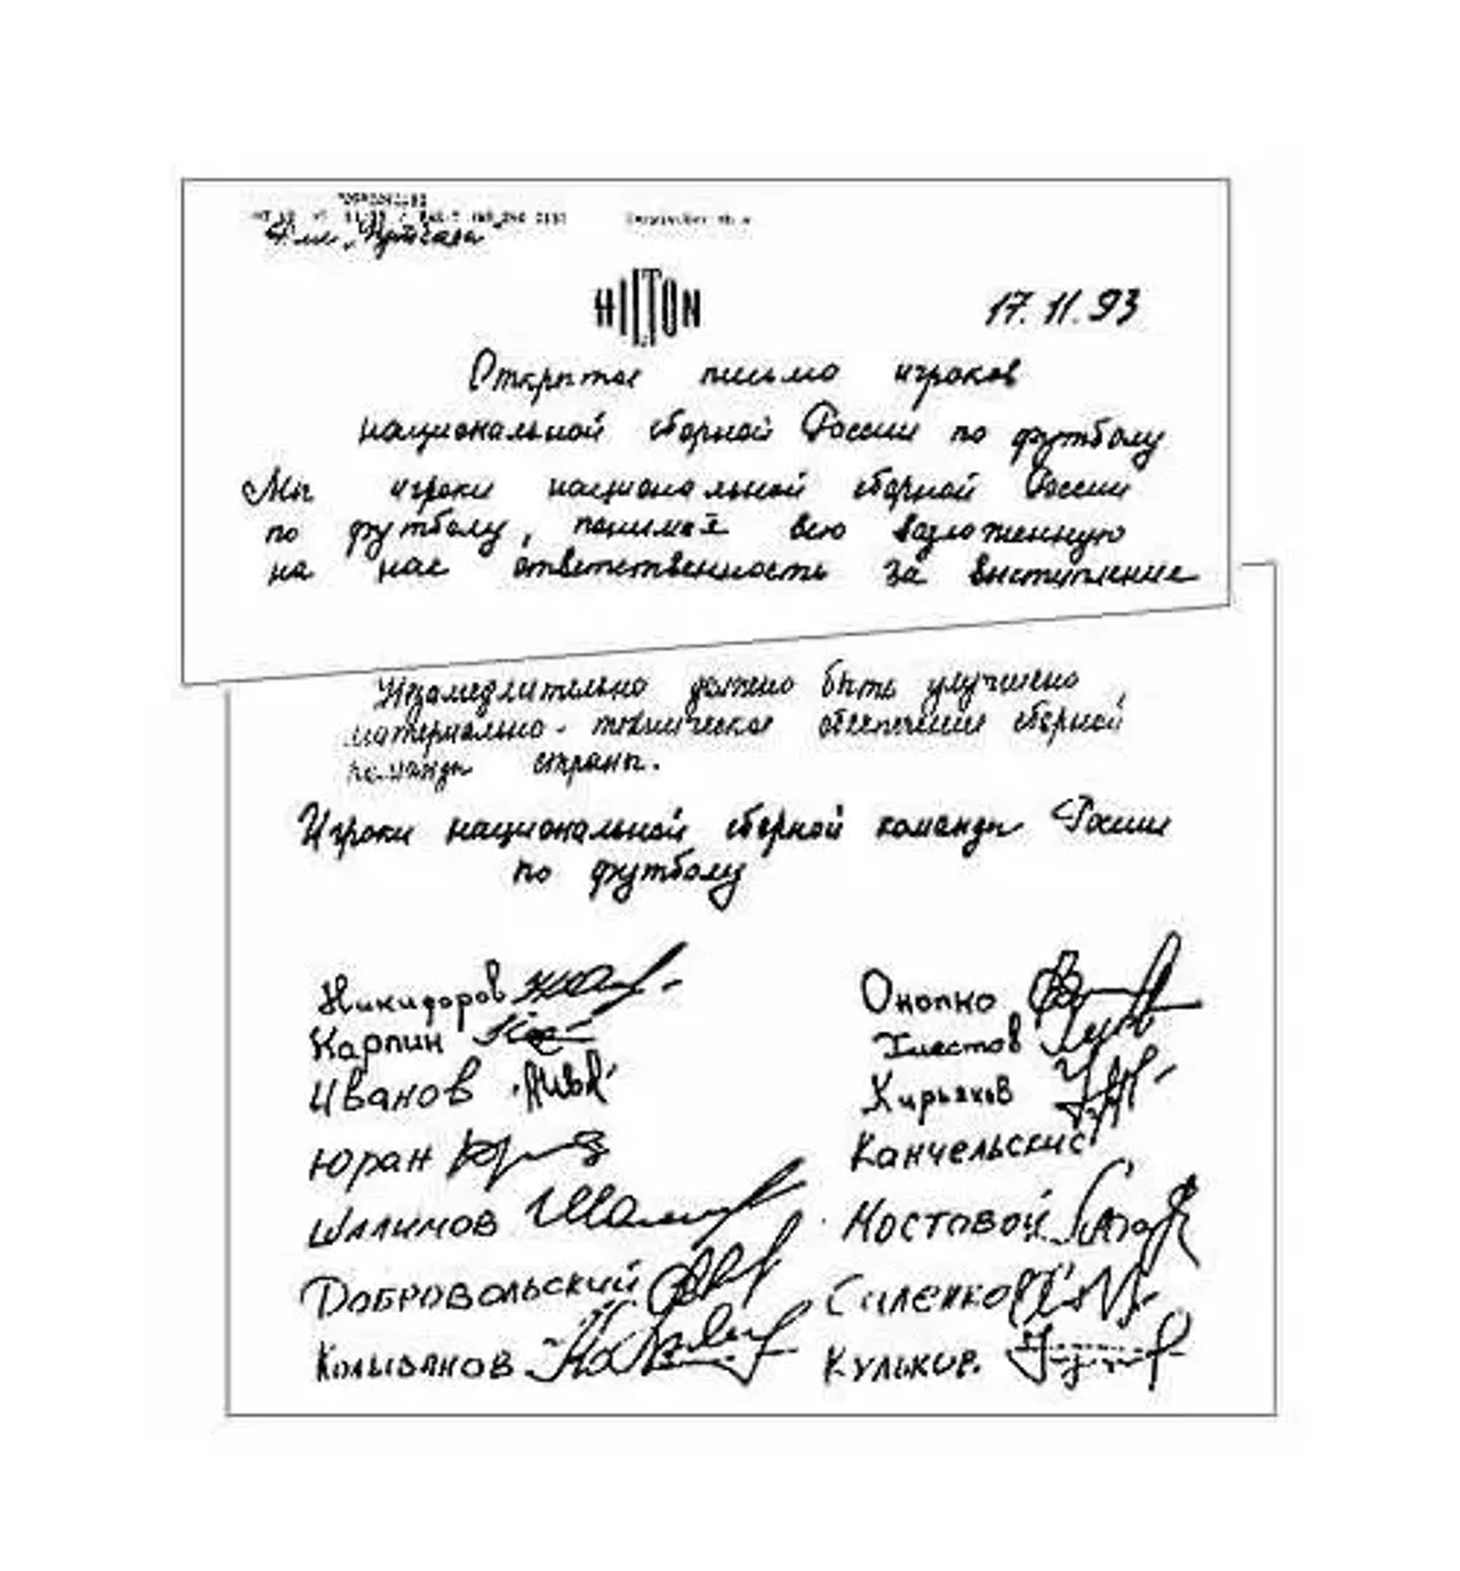 HILTON
17.11.93
Открытое письмо игроков
национальной сборной России по футболу
Мы игроки национальной сборной России
по футболу, понимая всю возложенную
на нас ответственность за выступление
Незамедлительно должно быть улучшено
материально-техническое обеспечение сборной
команды страны.
Игроки национальной сборной команды России
по футболу
Никифоров Онопко
Карпин Хлестов
Иванов Кирьяков
Юран Канчельскис
Шалимов Мостовой
Добровольский Силенко
Колыванов Кульков.